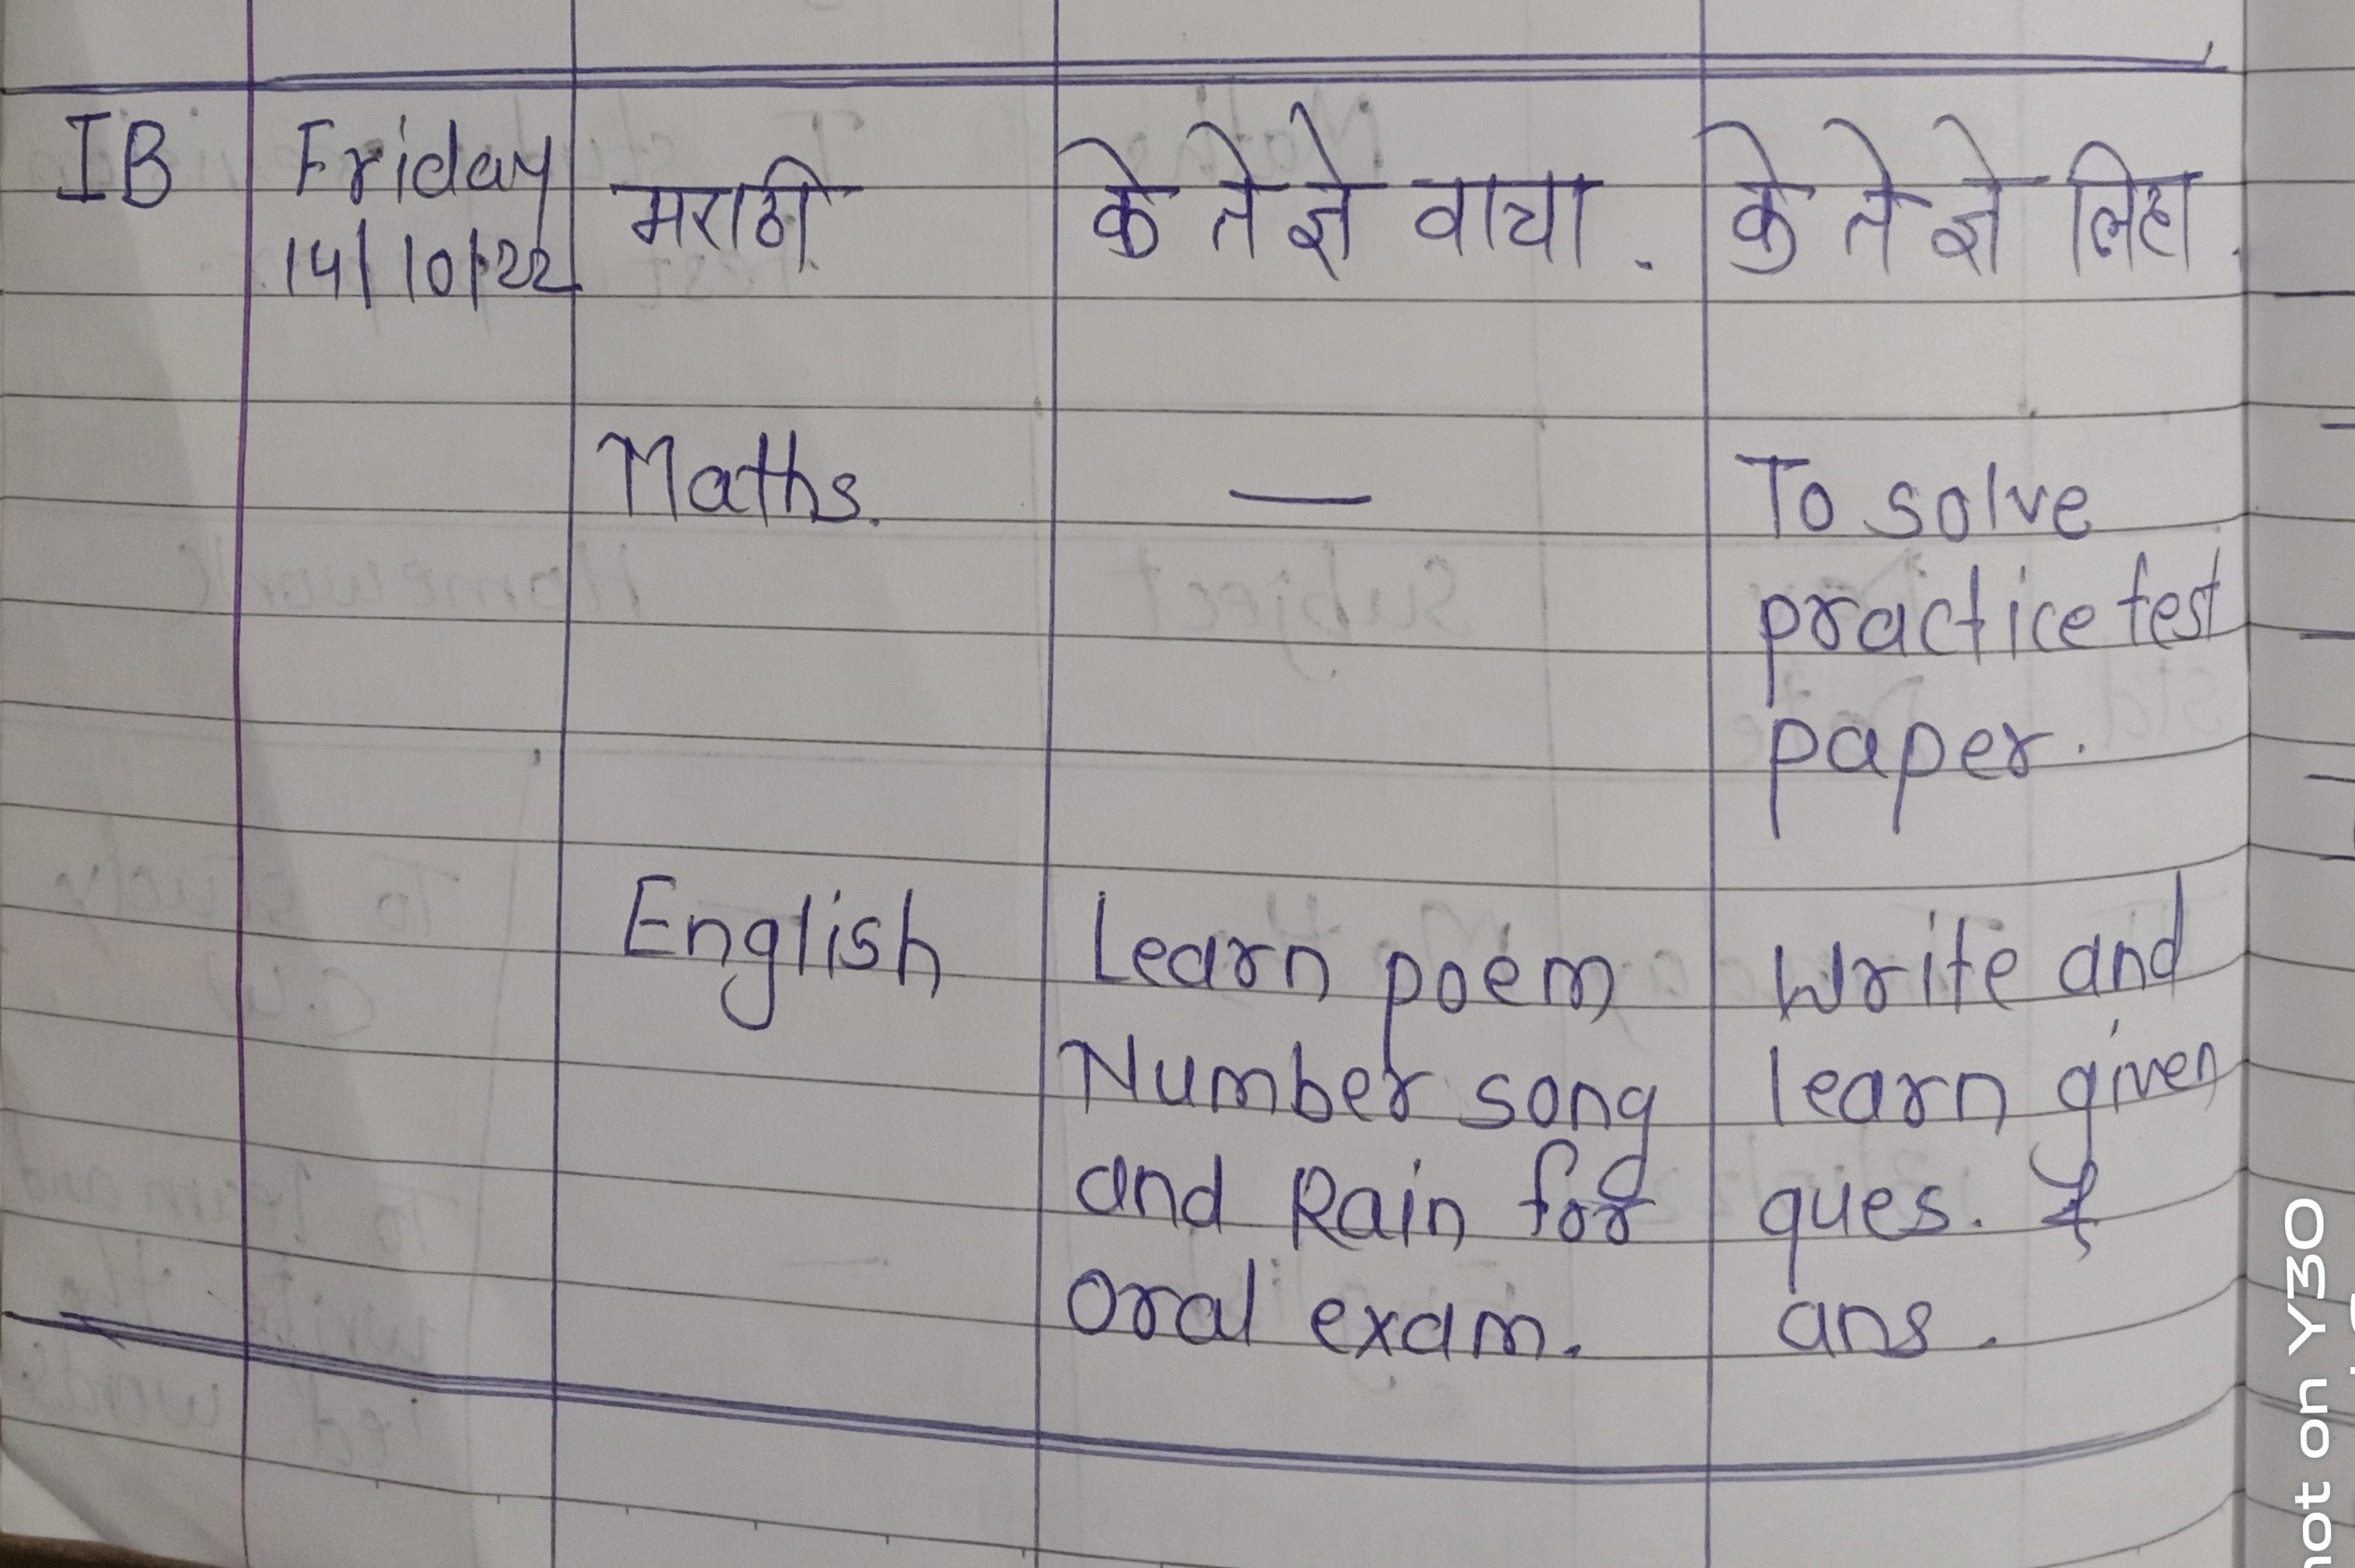 IB Friday मराठी के ते ज्ञे वाचा. के ते ज्ञे लिहा.
14/10/22
Maths. — To solve
practice test
paper.
English Learn poem Write and
Number song learn given
and Rain for ques. &
oral exam. ans.
not on Y30